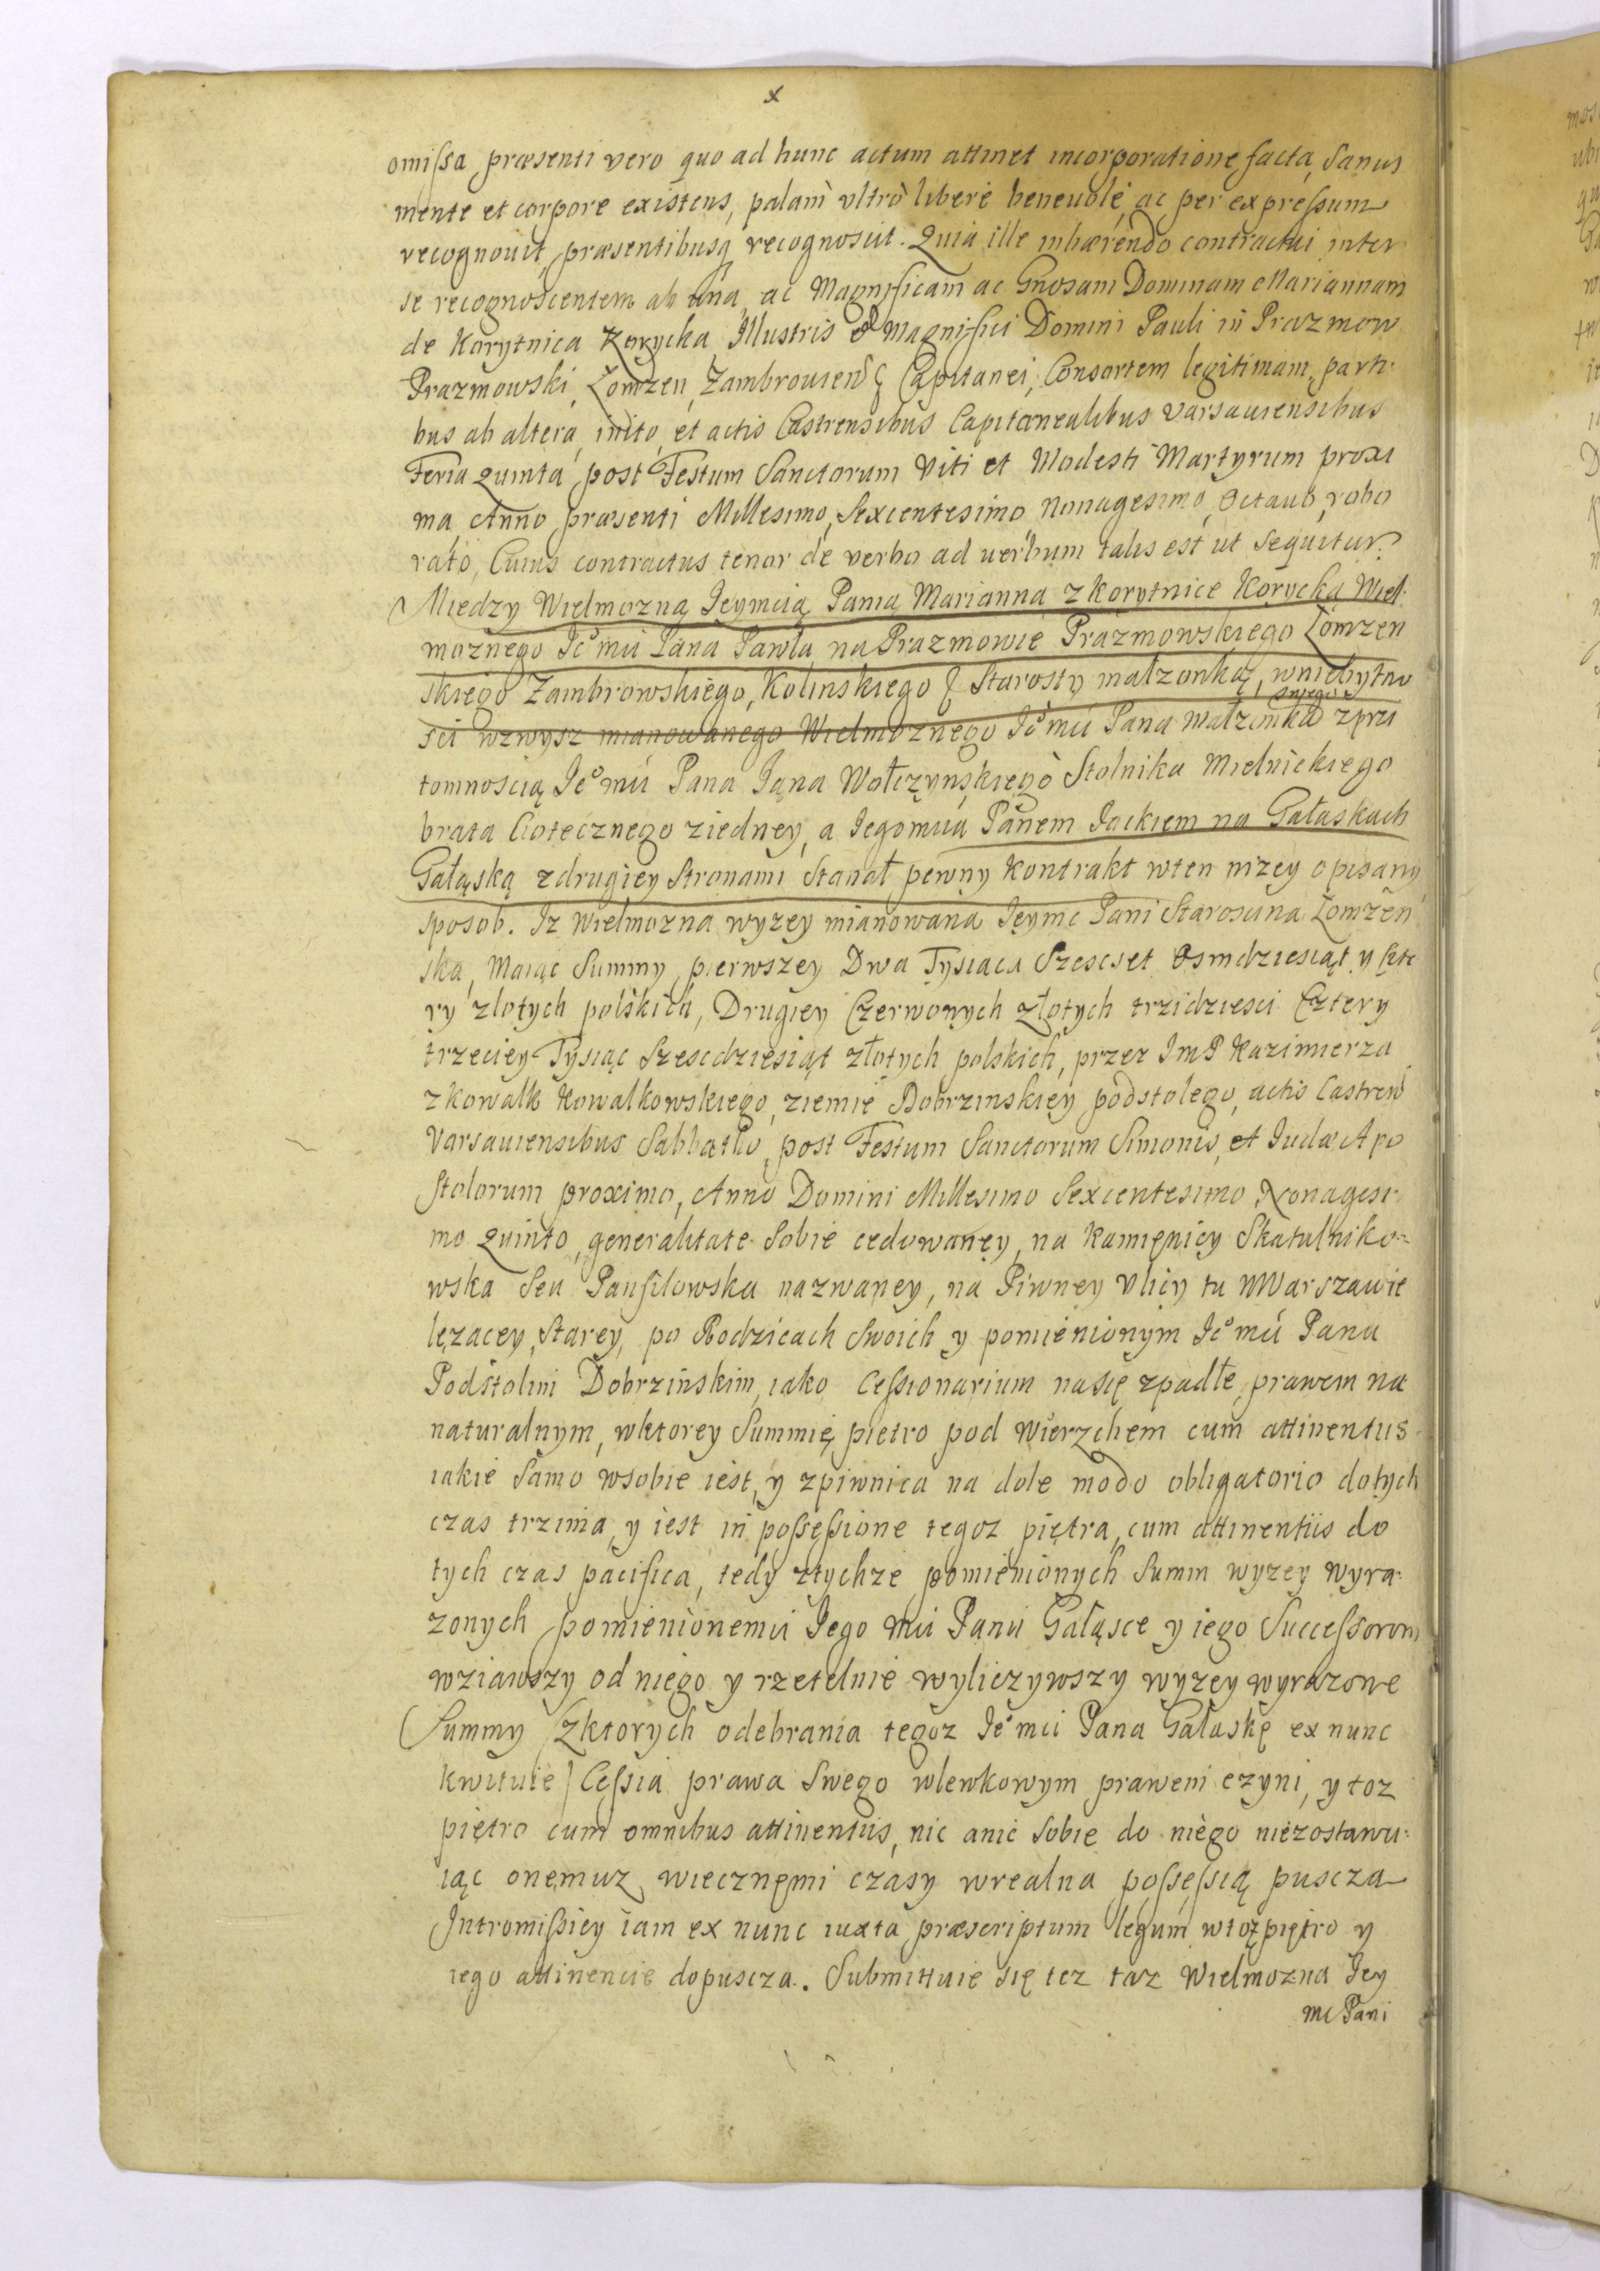 x
omissa, præsenti vero quo ad hunc actum attinet incorporatione facta, Sanus
mente et corpore existens, palam ultrò liberè beneuolè, ac per expressum
recognouit, præsentibusq recognoscit. Quia ille inhærendo contractui inter
se recognoscentem ab una, ac Magnificam ac Gnosam Dominam Mariannam
de Korytnica Korycka Illustris et Magnifici Domini Pauli in Prazmow
Prazmowski, Łomzen, Zambrouien & Capitanei, Consortem legitimam, parti-
bus ab altera, inito, et actis Castrensibus Capitanealibus Varsauiensibus
Feria quinta post Festum Sanctorum Viti et Modesti Martyrum proxi
ma, Anno præsenti Millesimo, Sexcentesimo, Nonagesimo, Octauo, robo
rato, Cuius contractus tenor de verbo ad uerbum talis est ut sequitur.
Miedzy Wielmozną Jeymcią Panią Marianna z Korytnice Korycką Wiel-
moznego Jeo mu Pana Pawła na Prazmowie Prazmowskiego Łomzen
skiego Zambrowskiego, Kolinskiego & Starosty małzonką, wniebytno
sci wzwysz mianowanego Wielmoznego Jeo mu Pana Małzonka swego zprzi
tomnoscią Jeo mu Pana Jana Wołczynskiego Stolnika Mielnickiego
brata Ciotecznego ziedney, a Jegomcia Panem Jackiem na Gałaskach
Gałąską zdrugiey Stronami Stanął pewny Kontrakt wten nizey opisany
sposob. Iz Wielmozna wyzey mianowana Jeymc Pani Staroscina Łomzen
ska, Maiąc Summy pierwszey Dwa Tysiaca Szescset Osmdziesiąt y czte
ry złotych polskich, Drugiey Czerwonych złotych trzidziesci Cztery
trzeciey Tysiąc Szescdziesiąt złotych polskich, przez ImP Kazimierza
z Kowalk Kowalkowskiego, ziemie Dobrzinskiey podstolego, actis Castren
Varsauiensibus Sabbatho, post Festum Sanctorum Simonis, et Judæ Apo
stolorum proximo, Anno Domini Millesimo Sexcentesimo Nonagesi-
mo quinto, generalitate Sobie cedowaney, na Kamienicy Skatulniko-
wska Seu Panfilowska nazwaney, na Piwney Ulicy tu w Warszawie
lezacey, Starey, po Rodzicach Swoich y pomienionym Jeo mu Panu
Podstolim Dobrzinskim, iako Cessionarium nasię zpadłe, prawem na
naturalnym, wktorey Summie pietro pod Wierzchem cum attinentiis
iakie Samo wsobie iest, y zpiwnica na dole modo obligatorio dotych
czas trzima, y iest in possessione tegoz piętra, cum attinentiis do
tych czas pacifica, tedy ztychze pomienionych Summ wyzey wyra-
zonych pomienionemu Jego Mu Panu Gałąsce y iego Successorom
wziawszy od niego y rzetelnie wyliczywszy wyzey wyrazone
Summy (zktorych odebrania tegoz Jeo mu Pana Gałaskę ex nunc
kwituie) Cessia prawa Swego wlewkowym prawem czyni, y toz
piętro cum omnibus attinentiis, nic anic Sobie do niego niezostawu-
iąc onemuz wiecznemi czasy wrealna possessią puscza
Intromissiey iam ex nunc iuxta præscriptum legum wtoz piętro y
iego attinencie dopuscza. Submittuie się tez taz Wielmozna Jey
mc Pani